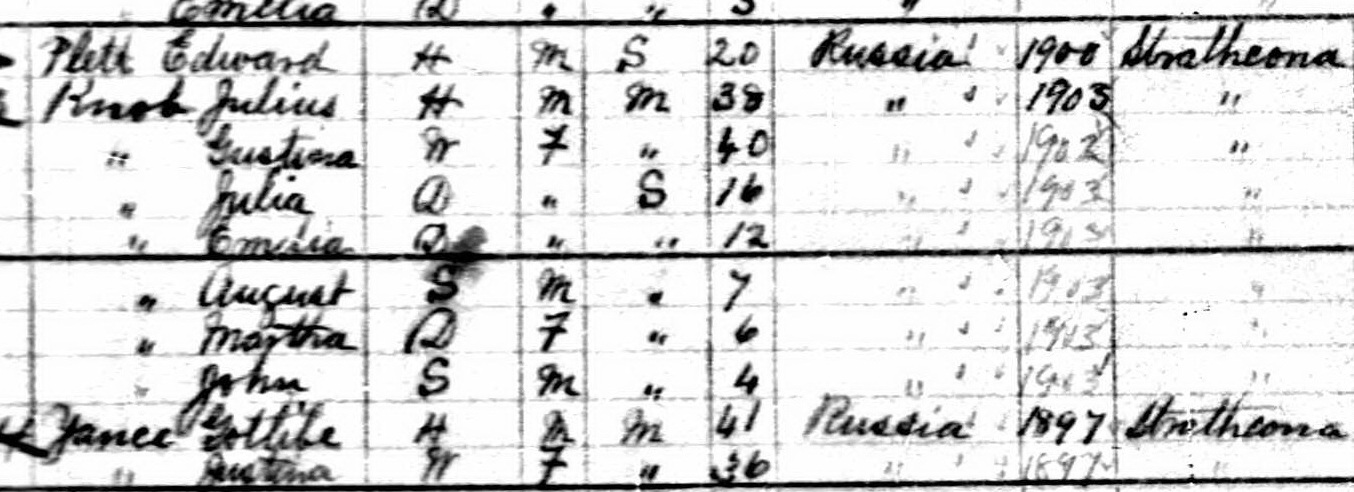 Emelia D " " 5 "
Plett Edward H M S 20 Russia 1900 Strathcona
Knob Julius H M M 38 " 1903 "
" Gustina W F " 40 " 1902 "
" Julia D " S 16 " 1903 "
" Emelia D " " 12 " 1903 "
" August S M " 7 " 1903 "
" Martha D F " 6 " 1903 "
" John S M " 4 " 1903 "
Yance Gottlibe H M M 41 Russia 1897 Strathcona
" W F " 36 " 1897 "